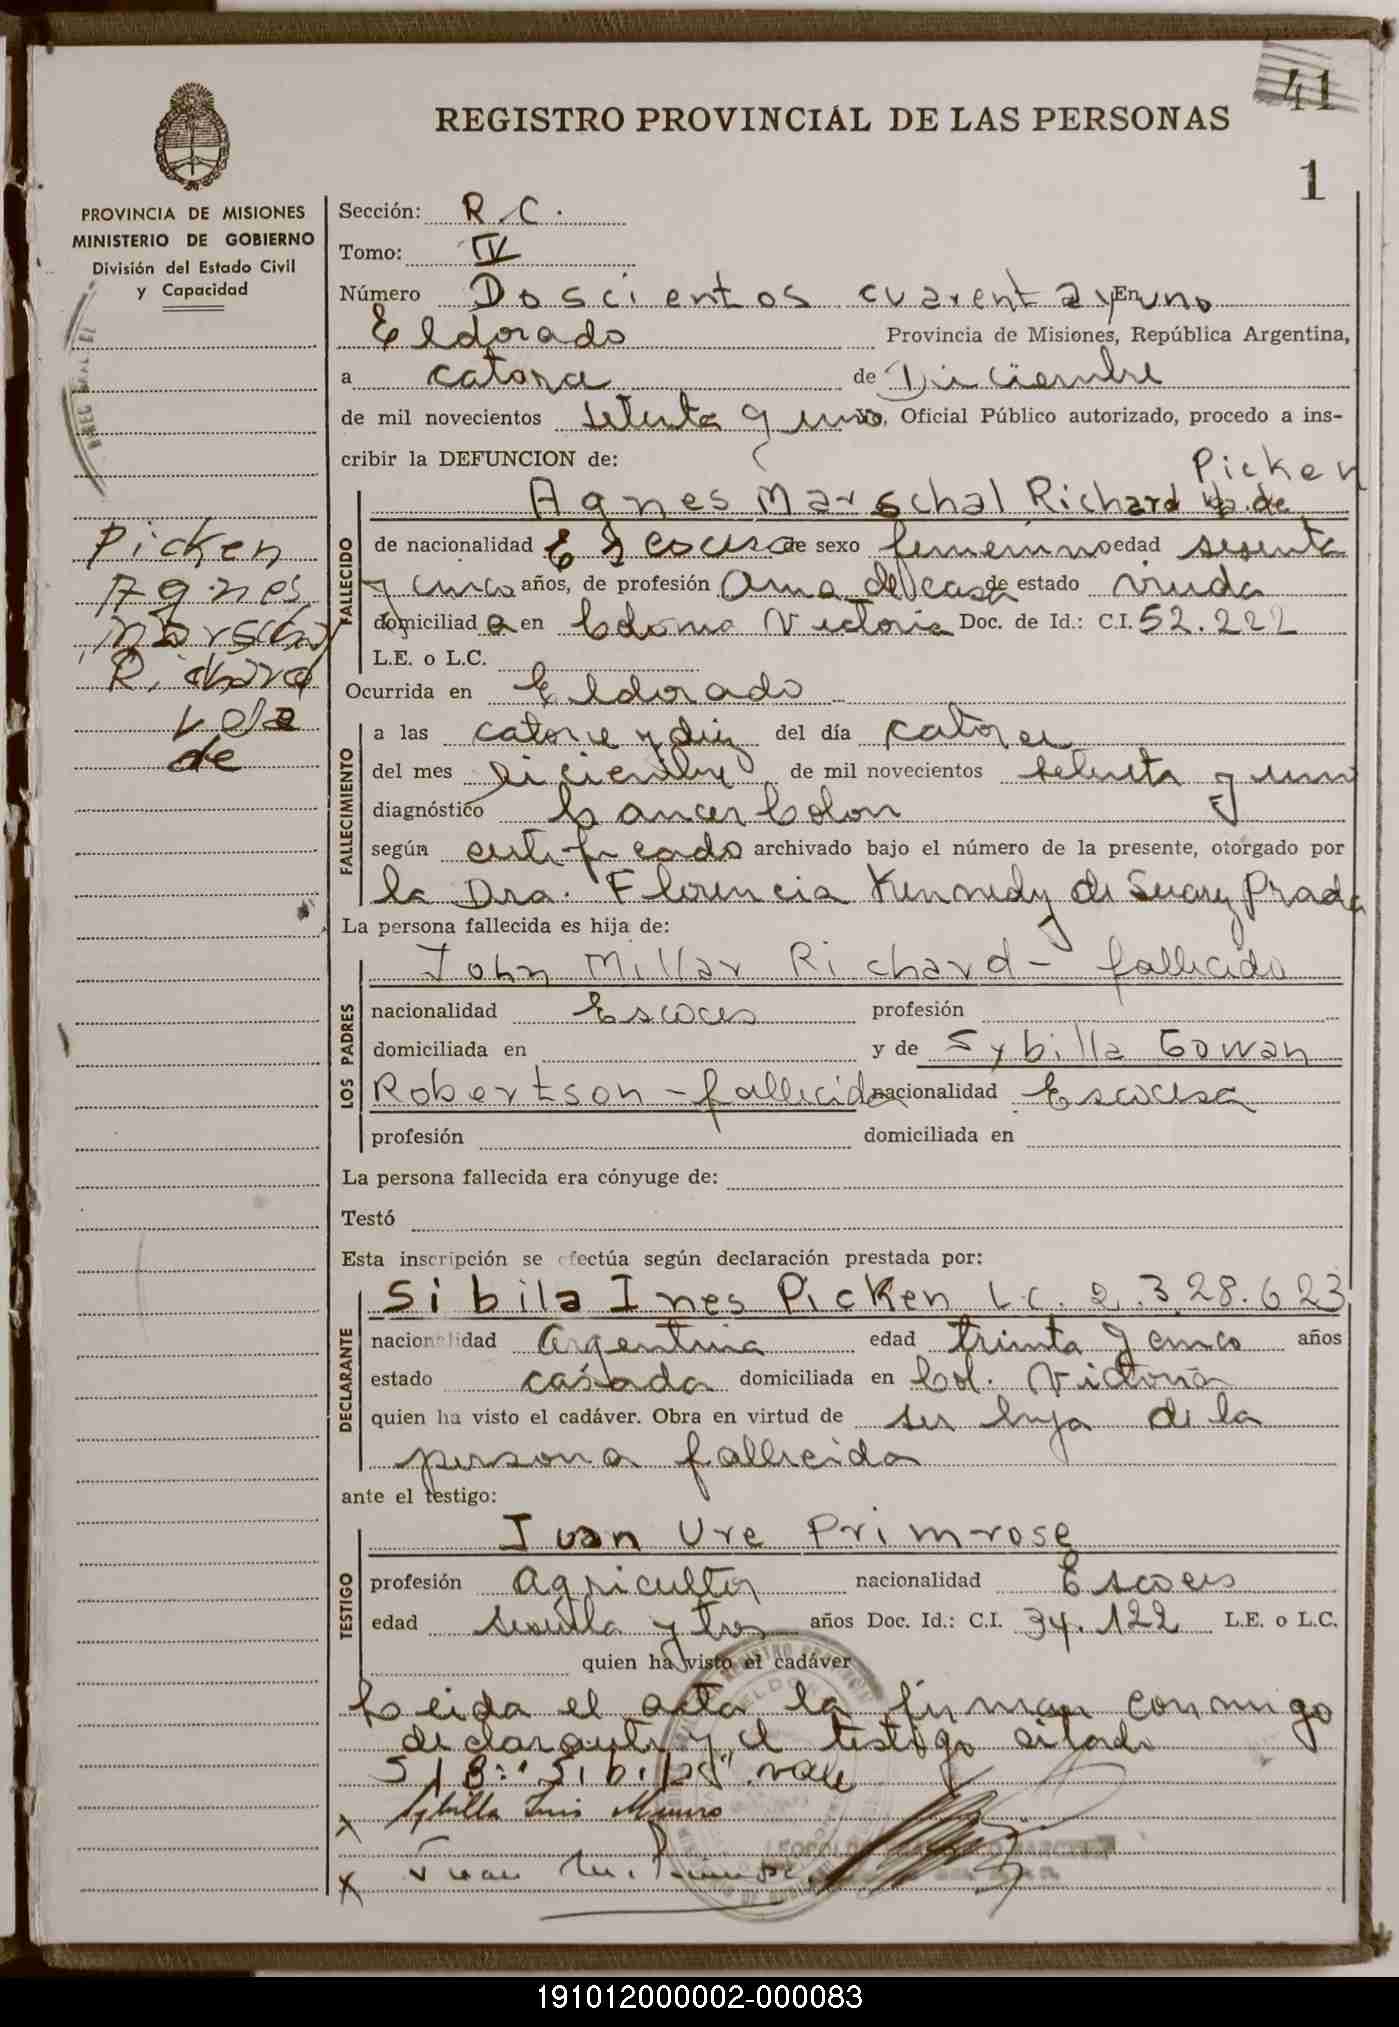 41
REGISTRO PROVINCIAL DE LAS PERSONAS
1
PROVINCIA DE MISIONES
MINISTERIO DE GOBIERNO
División del Estado Civil
y Capacidad
Picken
Agnes
Marschal
Richard
Vda
de
Sección: R.C.
Tomo: IV
Número Doscientos cuarenta y uno En
Eldorado Provincia de Misiones, República Argentina,
a catorce de Diciembre
de mil novecientos setenta y uno, Oficial Público autorizado, procedo a ins-
cribir la DEFUNCION de:
Picken
Agnes Marschal Richard Vda. de
FALLECIDO
de nacionalidad Escocesa de sexo femenino edad sesenta
y cinco años, de profesión Ama de casa de estado viuda
domiciliad a en Colonia Victoria Doc. de Id.: C.I. 52.222
L.E. o L.C.
Ocurrida en Eldorado
FALLECIMIENTO
a las catorce y diez del día catorce
del mes diciembre de mil novecientos setenta y uno
diagnóstico Cancer Colon
según certificado archivado bajo el número de la presente, otorgado por
la Dra. Florencia Kennedy de Suarez Prada
La persona fallecida es hija de:
LOS PADRES
John Millar Richard - fallecido
nacionalidad Escoces profesión
domiciliada en y de Sybilla Gowan
Robertson - fallecida nacionalidad Escocesa
profesión domiciliada en
La persona fallecida era cónyuge de:
Testó
Esta inscripción se efectúa según declaración prestada por:
DECLARANTE
Sibila Ines Picken L.C. 2.328.623
nacionalidad Argentina edad treinta y cinco años
estado casada domiciliada en Col. Victoria
quien ha visto el cadáver. Obra en virtud de ser hija de la
persona fallecida
ante el testigo:
TESTIGO
Ivan Ure Primrose
profesión Agricultor nacionalidad Escoces
edad sesenta y tres años Doc. Id.: C.I. 34.122 L.E. o L.C.
quien ha visto el cadáver
Leida el acta la firman conmigo
declarante y el testigo sitado
S/B: "Sibila" vale
x Sybilla Ines Munro
x Ivan
191012000002-000083